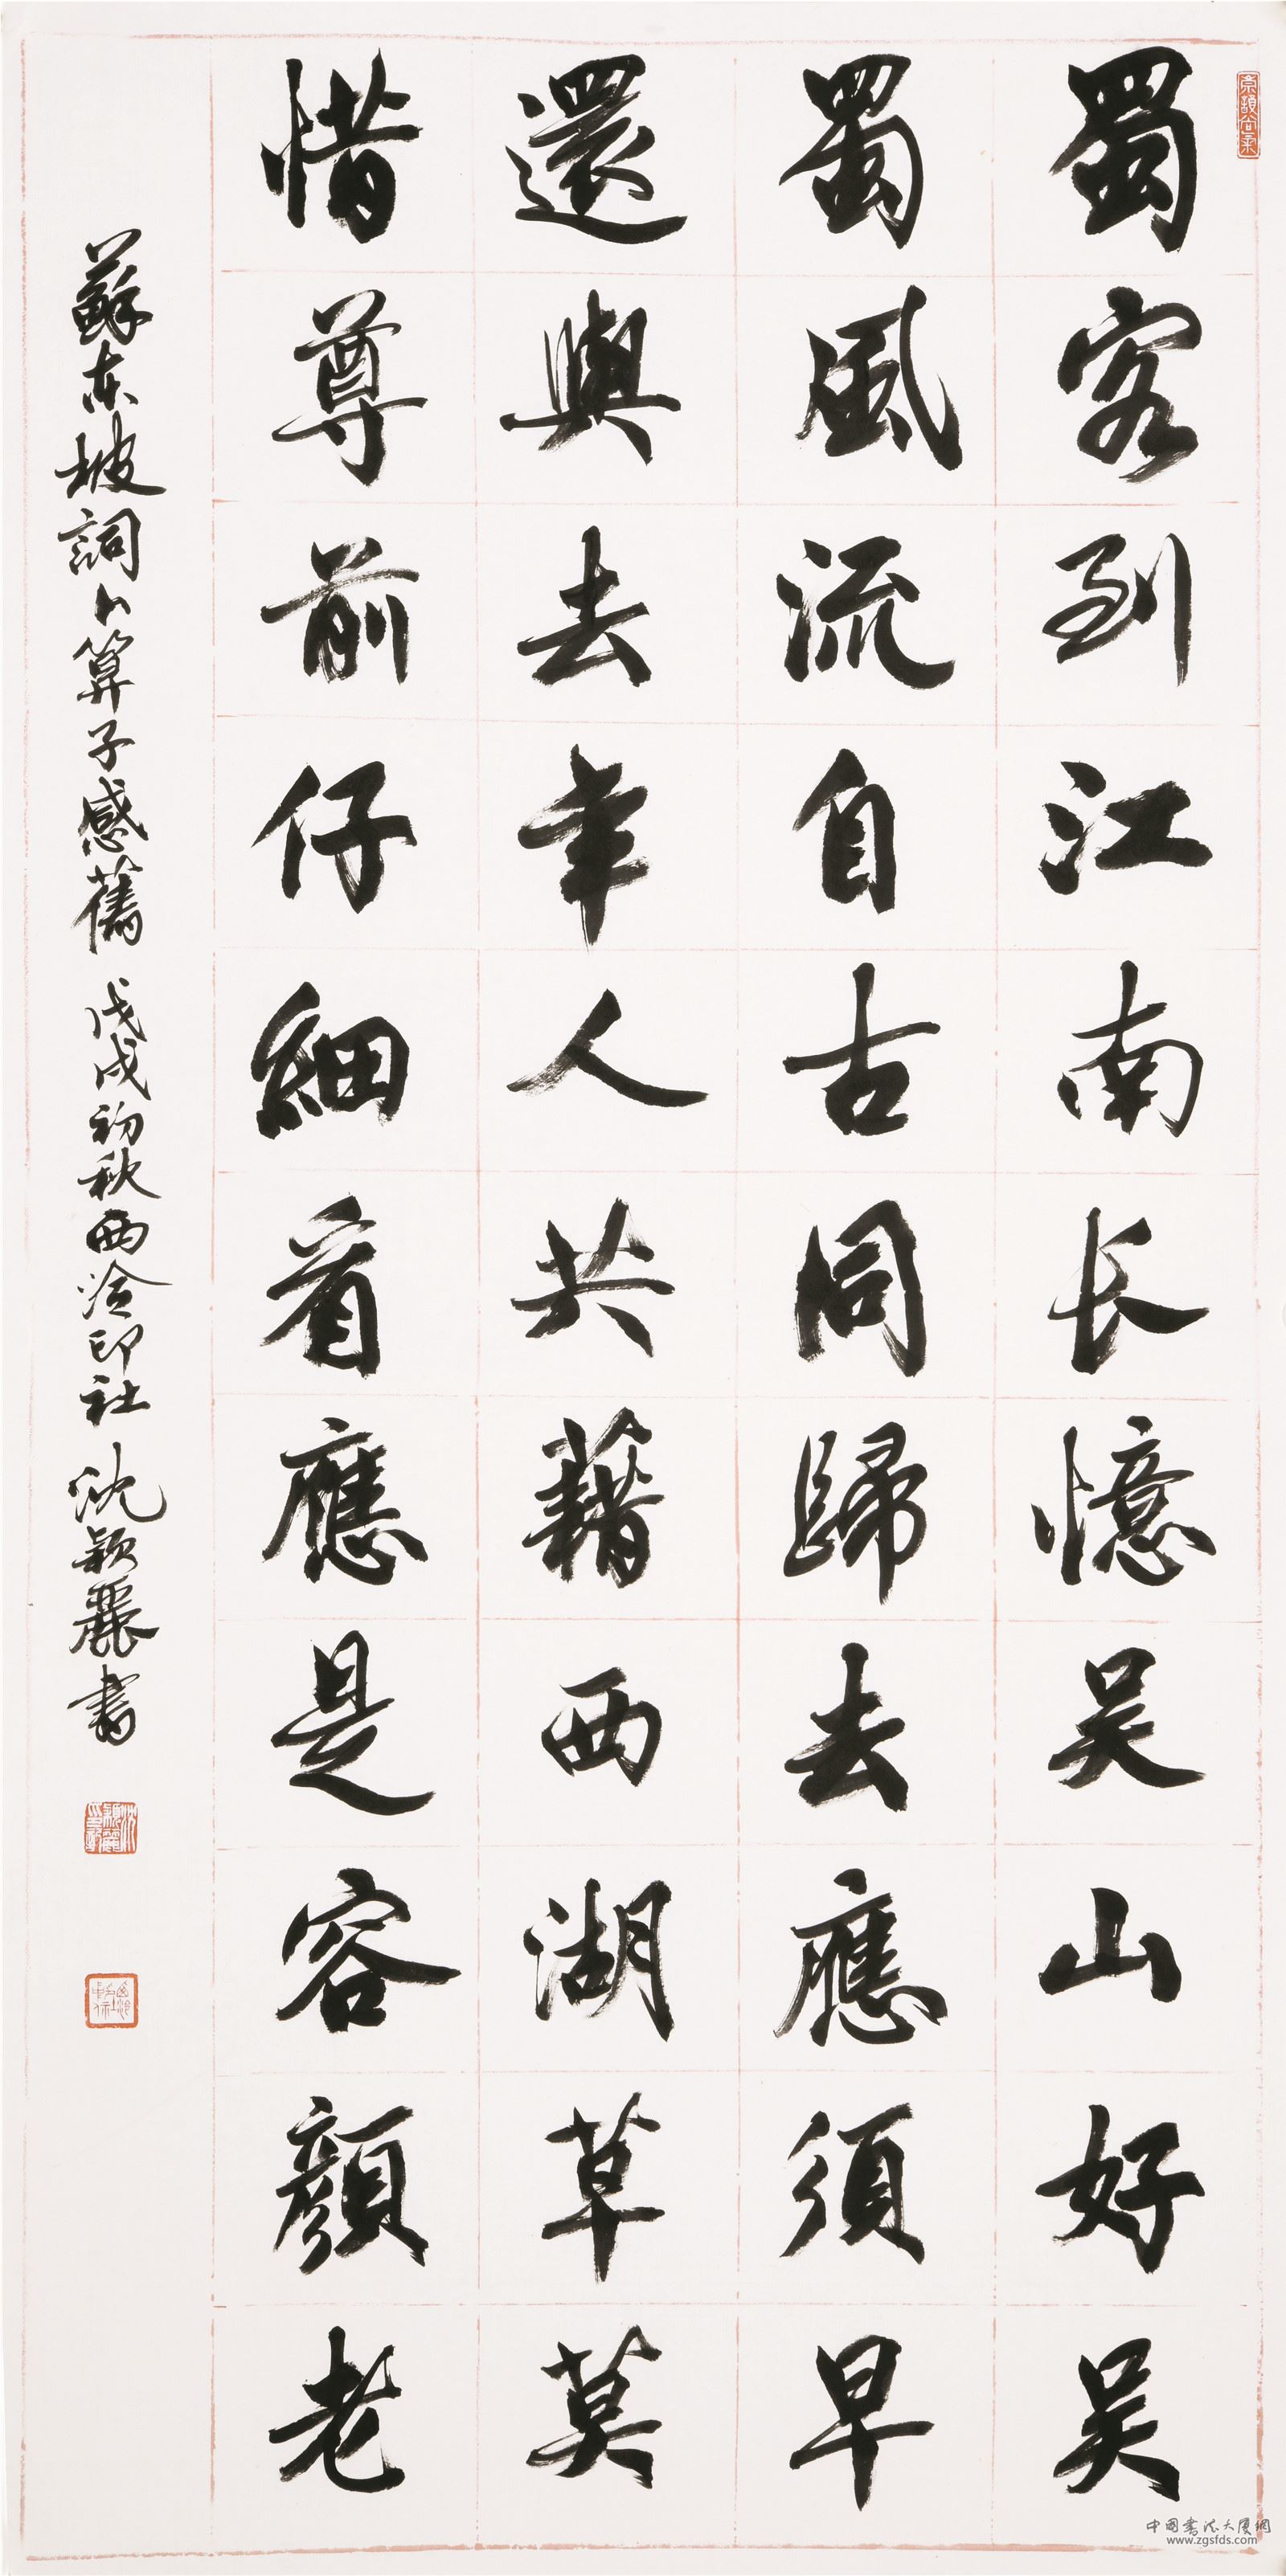 蜀客到江南长憶吴山好吴
蜀風流自古同歸去應須早
還與去年人共藉西湖草莫
惜尊前仔細看應是容顔老
蘇东坡詞卜算子感舊 戊戌初秋西泠印社沈颖麗書
中国书法大厦网
www.zgsfds.com